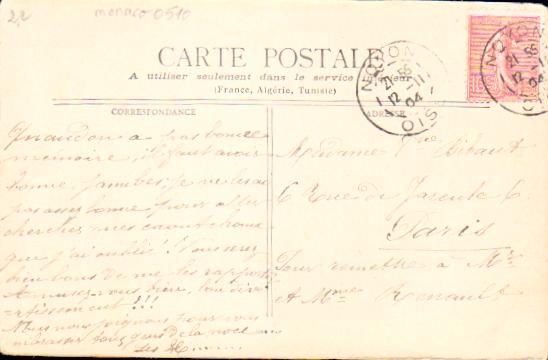 2,2
monaco 0510
CARTE POSTALE
A utiliser seulement dans le service intérieur
(France, Algérie, Tunisie)
CORRESPONDANCE
ADRESSE
NOYON
21 55
12 -11
04
OIS
NOYON
21 55
12 -11
04
OIS
Quand on a pas bonne
mémoire, il faut avoir
bonne jambes, je ne les ai
pas assez bonne pour aller
chercher mes caoutchouc
que j'ai oublié! Vous serez
bien bons de me les rapporter
Amusez-vous bien, bon dive
=rtissement!!!
Nous nous joignons pour vous
embrasser tous gens de la noce
Les H
Madame Vve Hibaut
6 Rue de 6
Paris
Pour remettre à Mr
et Mme Renault